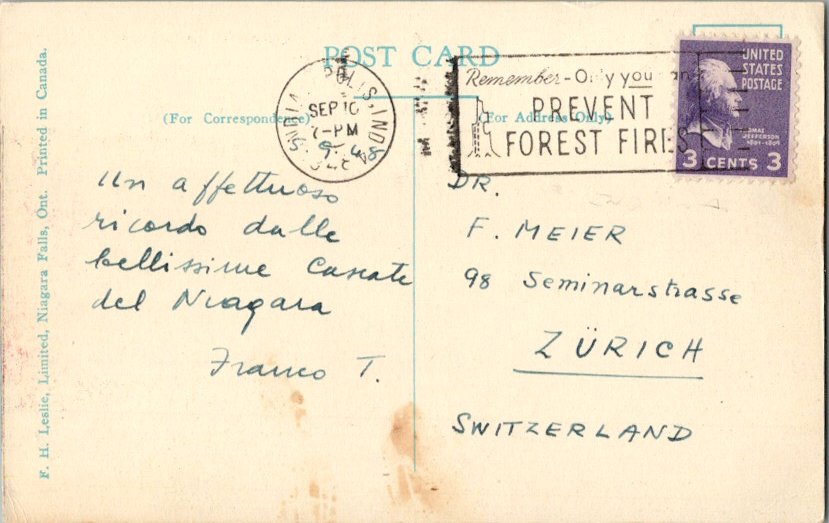 POST CARD
(For Correspondence)
(For Address Only)
F. H. Leslie, Limited, Niagara Falls, Ont. Printed in Canada.
SEP 10
7-PM
9. 48
IND.
Remember-Only you
PREVENT
FOREST FIRES
UNITED
STATES
POSTAGE
JEFFERSON
3 CENTS 3
Un affettuoso
ricordo dalle
bellissime Cascate
del Niagara
Franco T.
DR.
F. MEIER
98 Seminarstrasse
ZÜRICH
SWITZERLAND